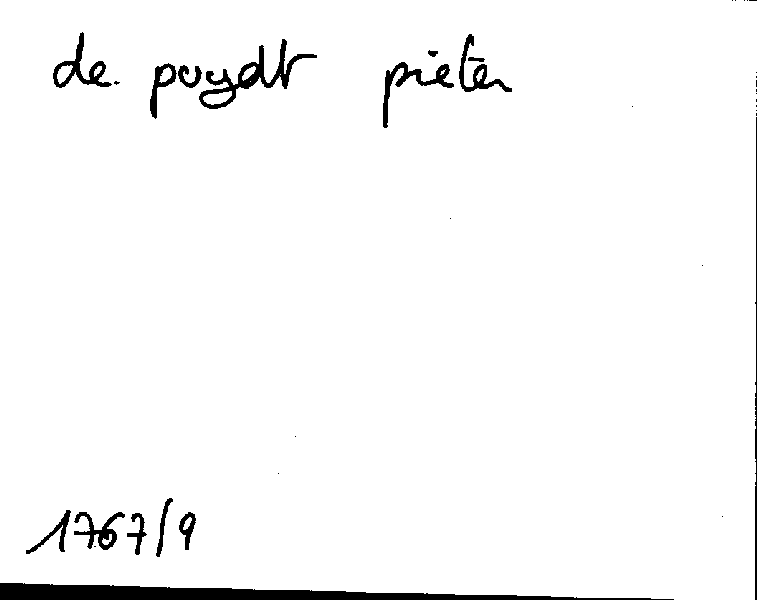 de puydt pieter
1767/9